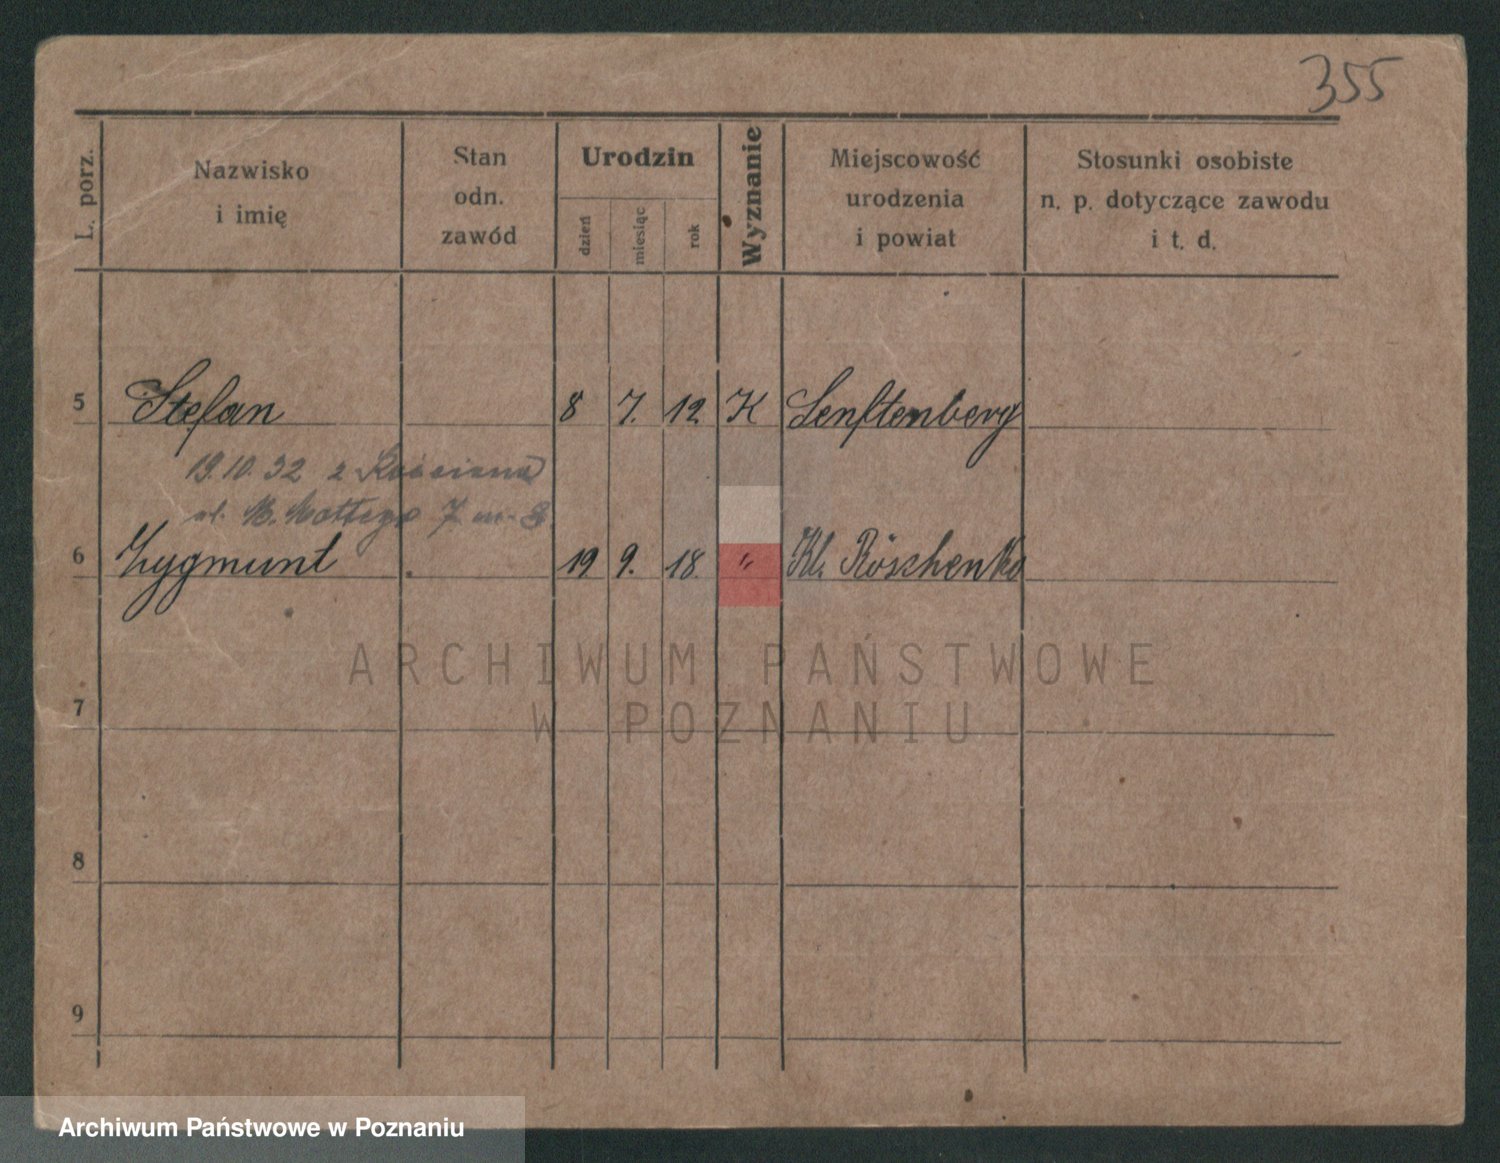 355
L. porz.
Nazwisko
i imię
Stan
odn.
zawód
Urodzin
dzień
miesiąc
rok
Wyznanie
Miejscowość
urodzenia
i powiat
Stosunki osobiste
n. p. dotyczące zawodu
i t. d.
5 Stefan 8 7. 12 K Senftenberg
19.10.32 z Kościana
ul. M. Mottego 7 m. 8.
6 Zygmunt 19. 9. 18. " Kl. Röschen
ARCHIWUM PAŃSTWOWE
W POZNANIU
7
8
9
Archiwum Państwowe w Poznaniu